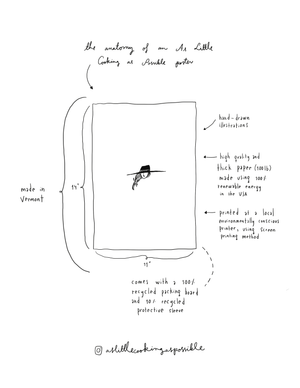 the anatomy of an As Little
Cooking as Possible poster
hand-drawn
illustrations
high quality and
thick paper (100lb)
made using 100%
renewable energy
in the USA
made in
Vermont
printed at a local
environmentally conscious
printer, using screen
printing method
11"
comes with a 100%
recycled packing board
and 90% recycled
protective sleeve
aslittlecookingaspossible